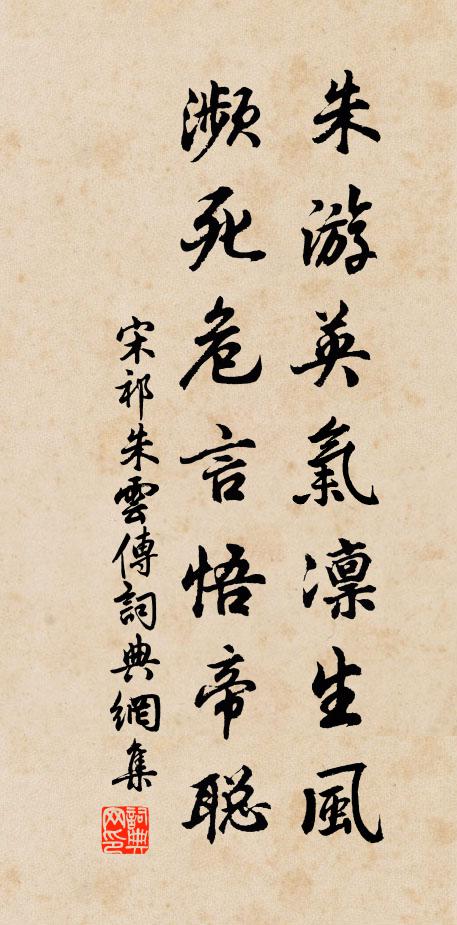 朱游英氣凛生風
瀕死危言悟帝聡
宋祁朱雲傳詞典網集
詞典网印